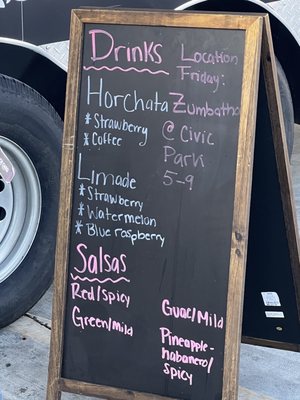 Drinks
Horchata
*Strawberry
*Coffee
Limade
*Strawberry
*Watermelon
*Blue raspberry
Location
Friday:
Zumbathon
@ Civic
Park
5-9
Salsas
Red/spicy
Green/mild
Guac/Mild
Pineapple-
habanero/
spicy